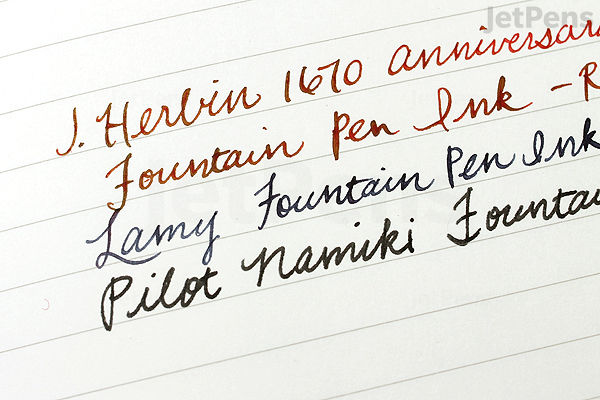 JetPens
J. Herbin 1670 Anniversar
Fountain Pen Ink - R
Lamy Fountain Pen Ink
Pilot Namiki Fountai